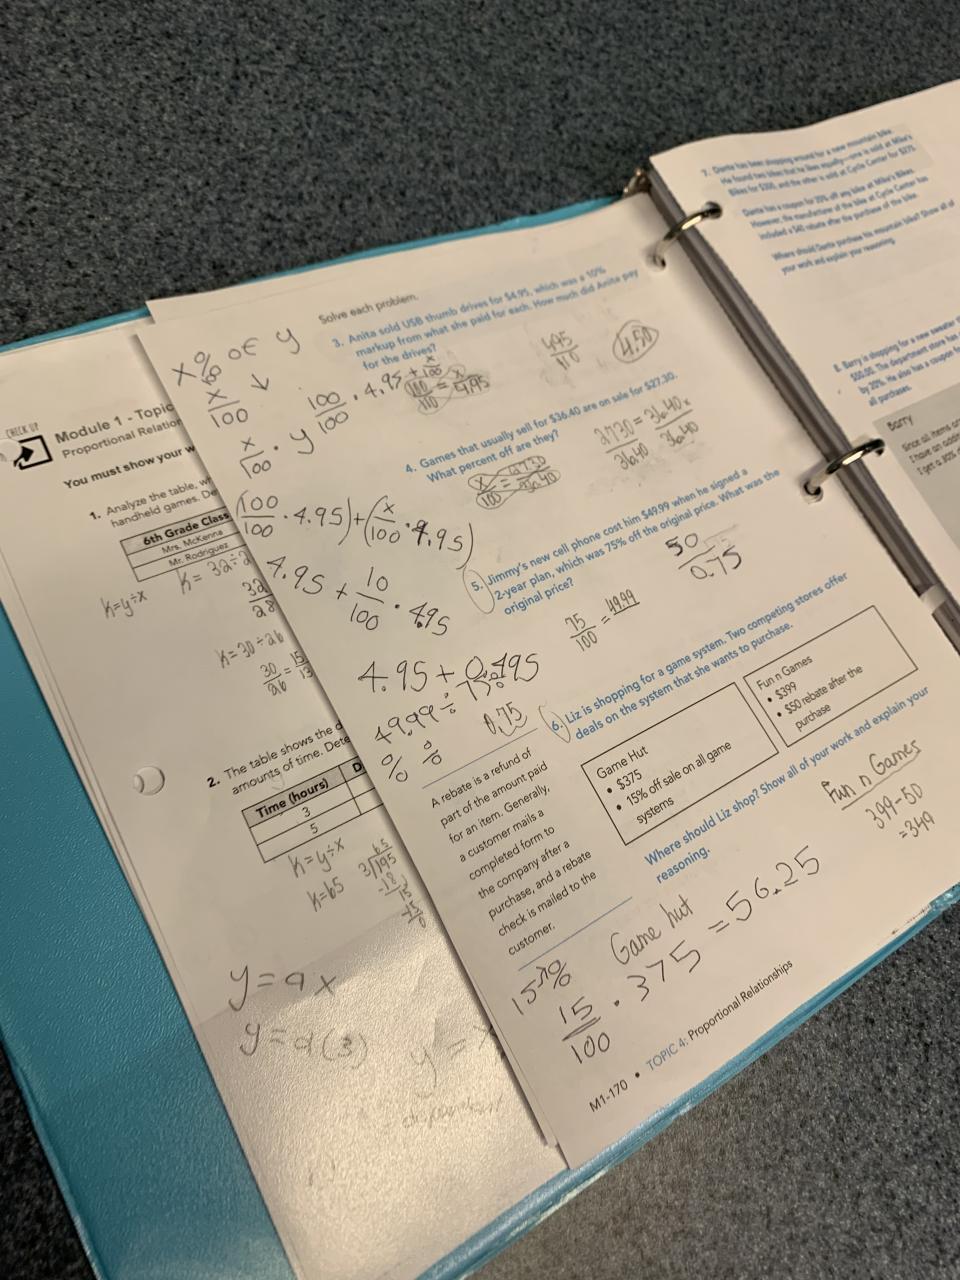 CHECK UP
Module 1 - Topic
Proportional Relation
You must show your w
1. Analyze the table, w
handheld games. De
6th Grade Class
Mrs. McKenna
Mr. Rodriguez
k=y÷x
K= 32÷2
32
28
k=30÷26
30/26 = 15/13
2. The table shows the d
amounts of time. Dete
Time (hours) D
3
5
k=y÷x
k=65
65
3)195
-18
y=ax
y=a(3)
y =
x% of y
x/100 ↓
x/100 · y
100/100 · 4.95 + x/100
(100/100 · 4.95)+(x/100 · 4.95)
4.95 + 10/100 · 4.95
4.95 + 0.495
49.99 ÷ 75.0
% %
0.75
Solve each problem.
3. Anita sold USB thumb drives for $4.95, which was a 10%
markup from what she paid for each. How much did Anita pay
for the drives?
100/110 = x/4.95
495/110
4.50
4. Games that usually sell for $36.40 are on sale for $27.30.
What percent off are they?
x/100 = 2730/36.40
2730/36.40 = 36.40x/36.40
5. Jimmy's new cell phone cost him $49.99 when he signed a
2-year plan, which was 75% off the original price. What was the
original price?
75/100 = 49.99
50/0.75
6. Liz is shopping for a game system. Two competing stores offer
deals on the system that she wants to purchase.
Game Hut
• $375
• 15% off sale on all game
systems
Fun n Games
• $399
• $50 rebate after the
purchase
Where should Liz shop? Show all of your work and explain your
reasoning.
A rebate is a refund of
part of the amount paid
for an item. Generally,
a customer mails a
completed form to
the company after a
purchase, and a rebate
check is mailed to the
customer.
Fun n Games
399-50
=349
Game hut
15/100 · 375 = 56.25
M1-170 • TOPIC 4: Proportional Relationships
7. Dante has been shopping around for a new mountain bike.
He found two bikes that he likes equally—one is sold at Mike's
Bikes for $300, and the other is sold at Cycle Center for $275
Dante has a coupon for 20% off any bike at Mike's Bikes.
However, the manufacturer of the bike at Cycle Center has
included a $40 rebate after the purchase of the bike.
Where should Dante purchase his mountain bike? Show all of
your work and explain your reasoning.
8. Barry is shopping for a new sweater
$50.00. The department store has
by 20%. He also has a coupon fo
all purchases.
Barry
Since all items are
I have an addit
I get a 30%